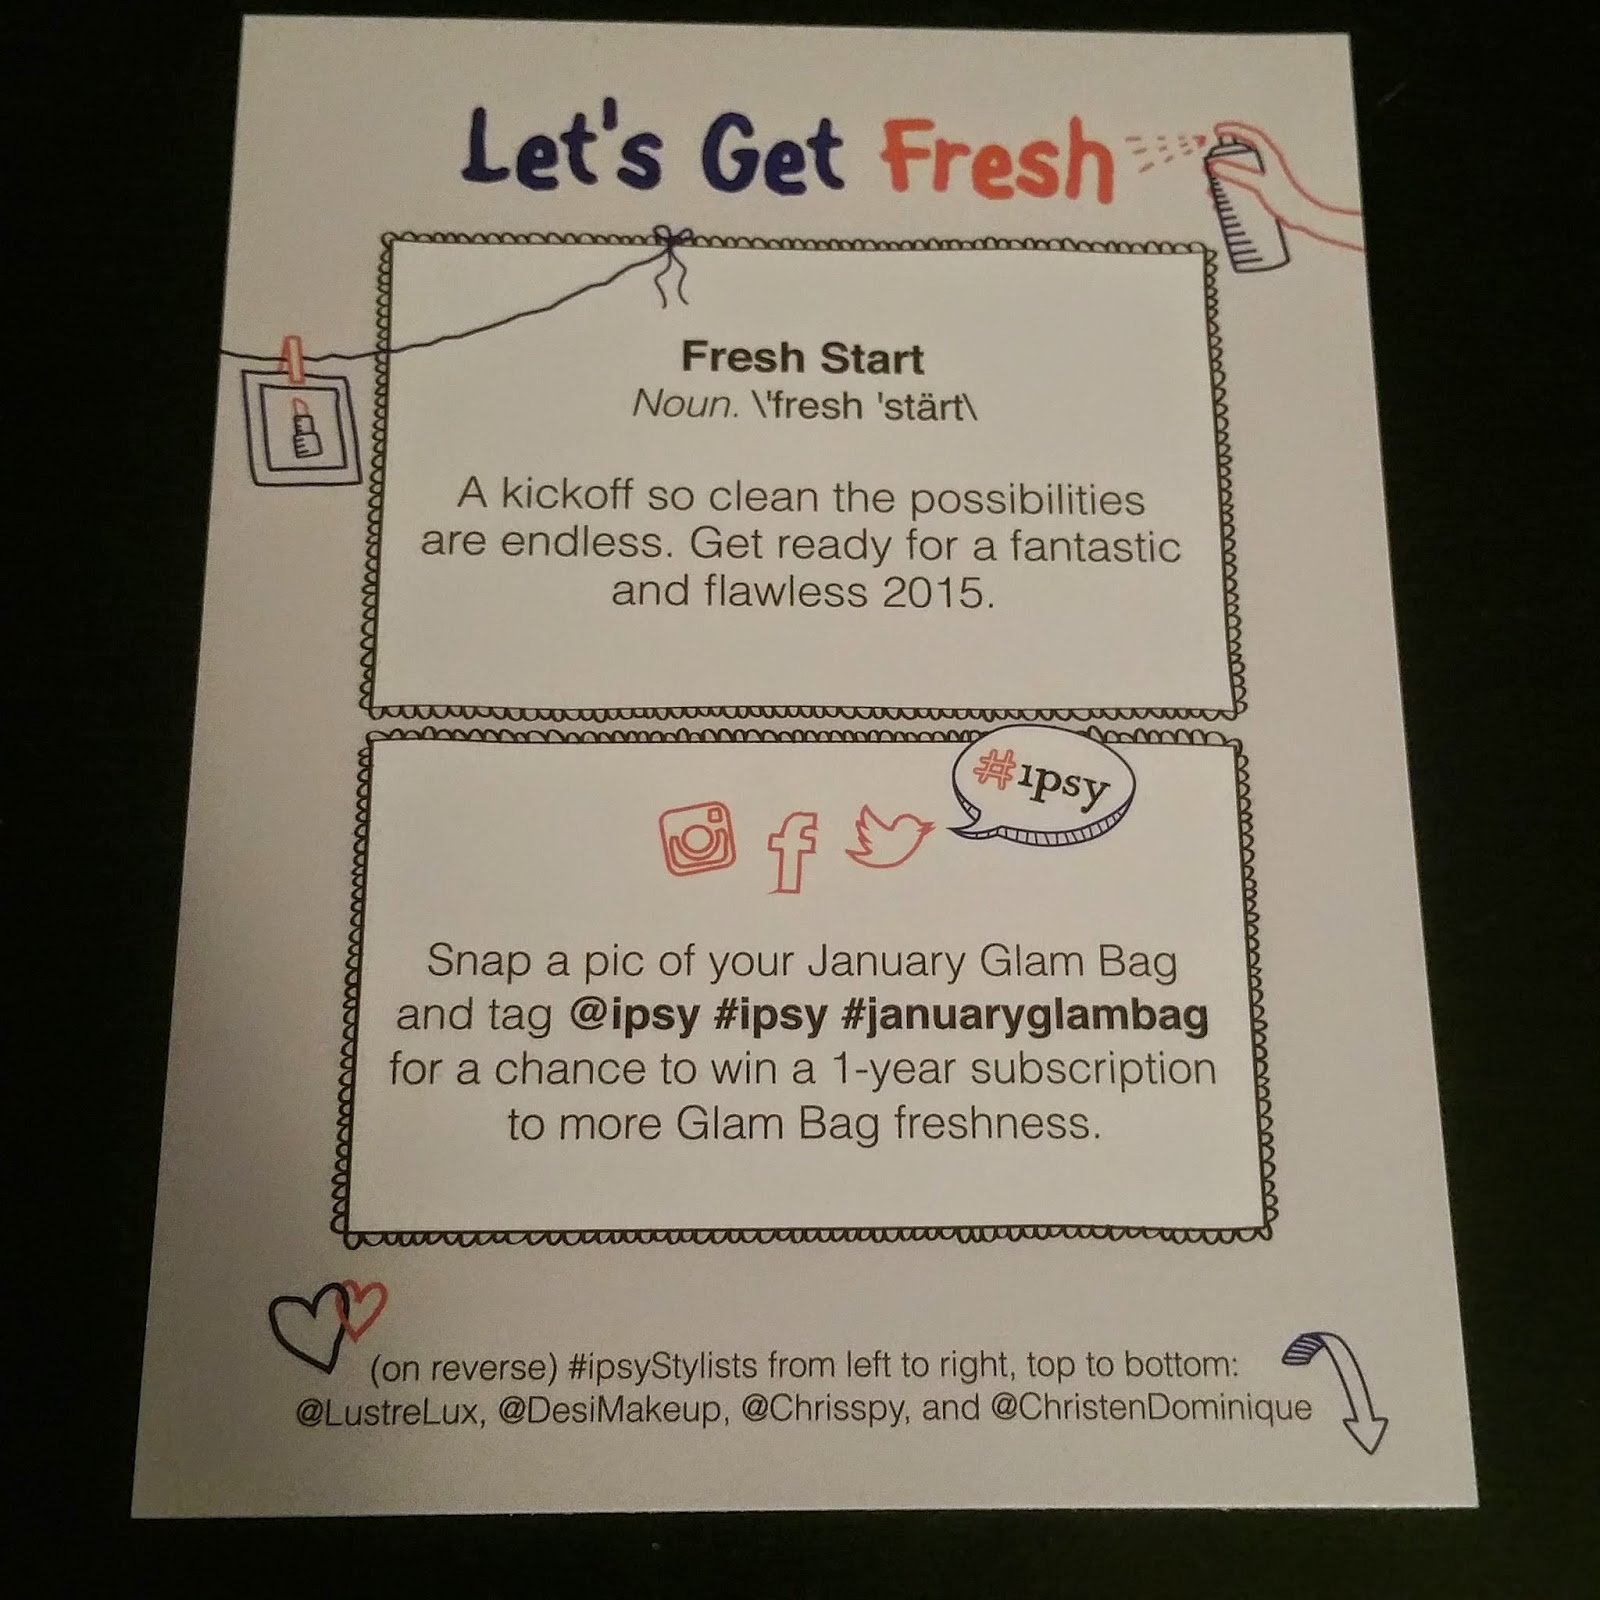 Let's Get Fresh
Fresh Start
Noun. \'fresh 'stärt\
A kickoff so clean the possibilities
are endless. Get ready for a fantastic
and flawless 2015.
#ipsy
Snap a pic of your January Glam Bag
and tag @ipsy #ipsy #januaryglambag
for a chance to win a 1-year subscription
to more Glam Bag freshness.
(on reverse) #ipsyStylists from left to right, top to bottom:
@LustreLux, @DesiMakeup, @Chrisspy, and @ChristenDominique